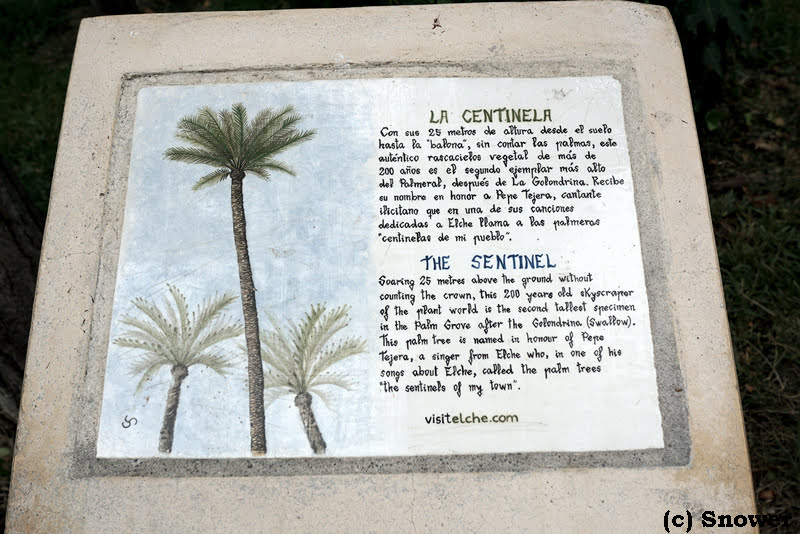 LA CENTINELA
Con sus 25 metros de altura desde el suelo
hasta la "balona", sin contar las palmas, este
auténtico rascacielos vegetal de más de
200 años es el segundo ejemplar más alto
del Palmeral, después de La Golondrina. Recibe
su nombre en honor a Pepe Tejera, cantante
ilicitano que en una de sus canciones
dedicadas a Elche llama a las palmeras
"centinelas de mi pueblo".
THE SENTINEL
Soaring 25 metres above the ground without
counting the crown, this 200 years old skyscraper
of the plant world is the second tallest specimen
in the Palm Grove after the Golondrina (Swallow).
This palm tree is named in honour of Pepe
Tejera, a singer from Elche who, in one of his
songs about Elche, called the palm trees
"the sentinels of my town".
visitelche.com
(c) Snower